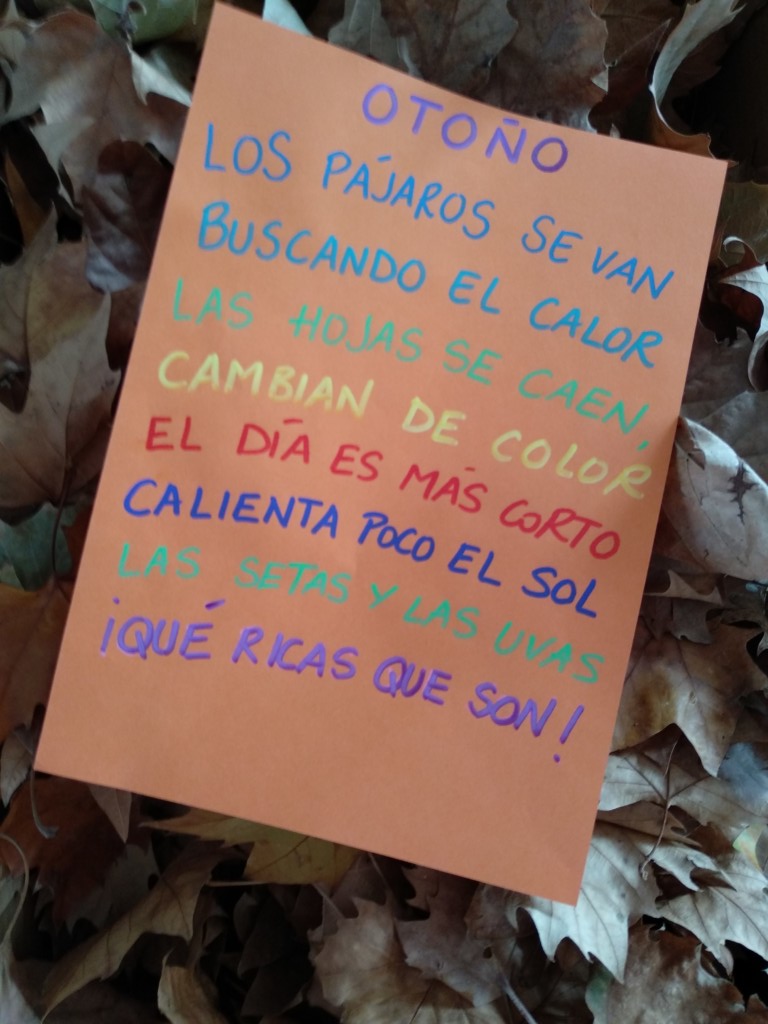 OTOÑO
LOS PÁJAROS SE VAN
BUSCANDO EL CALOR
LAS HOJAS SE CAEN,
CAMBIAN DE COLOR
EL DÍA ES MÁS CORTO
CALIENTA POCO EL SOL
LAS SETAS Y LAS UVAS
¡QUÉ RICAS QUE SON!